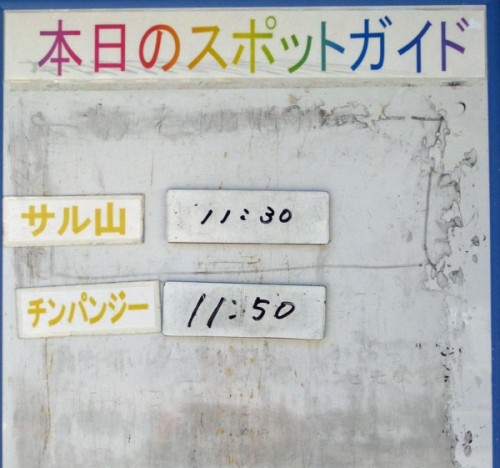 本日のスポットガイド
サル山 11:30
チンパンジー 11:50